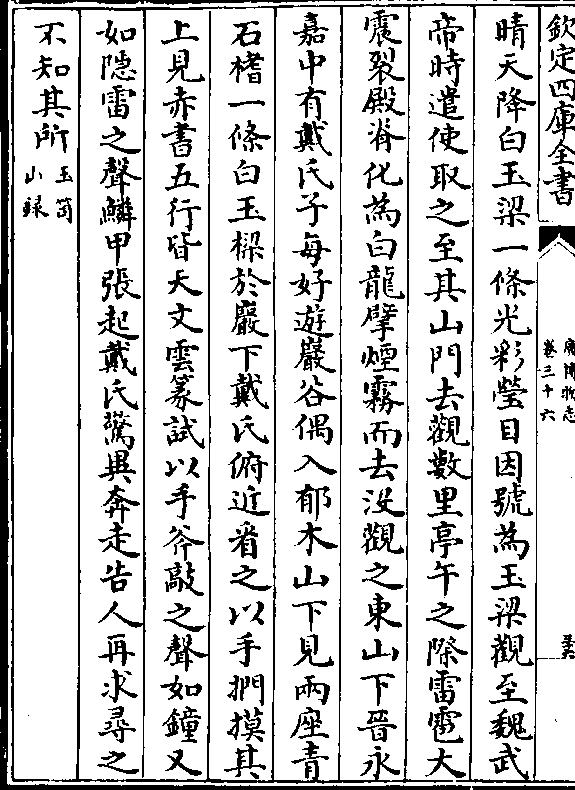 欽定四庫全書
廣博物志
卷三十六
晴天降白玉梁一條光彩瑩目因號為玉梁觀至魏武
帝時遣使取之至其山門去觀數里亭午之際雷雹大
震裂殿脊化為白龍擘煙霧而去沒觀之東山下晉永
嘉中有戴氏子每好遊巖谷偶入郁木山下見兩座青
石楮一條白玉樑於巖下戴氏俯近看之以手捫摸其
上見赤書五行皆天文雲篆試以手斧敲之聲如鐘又
如隱雷之聲鱗甲張起戴氏驚異奔走告人再求尋之
不知其所
玉笥
山錄